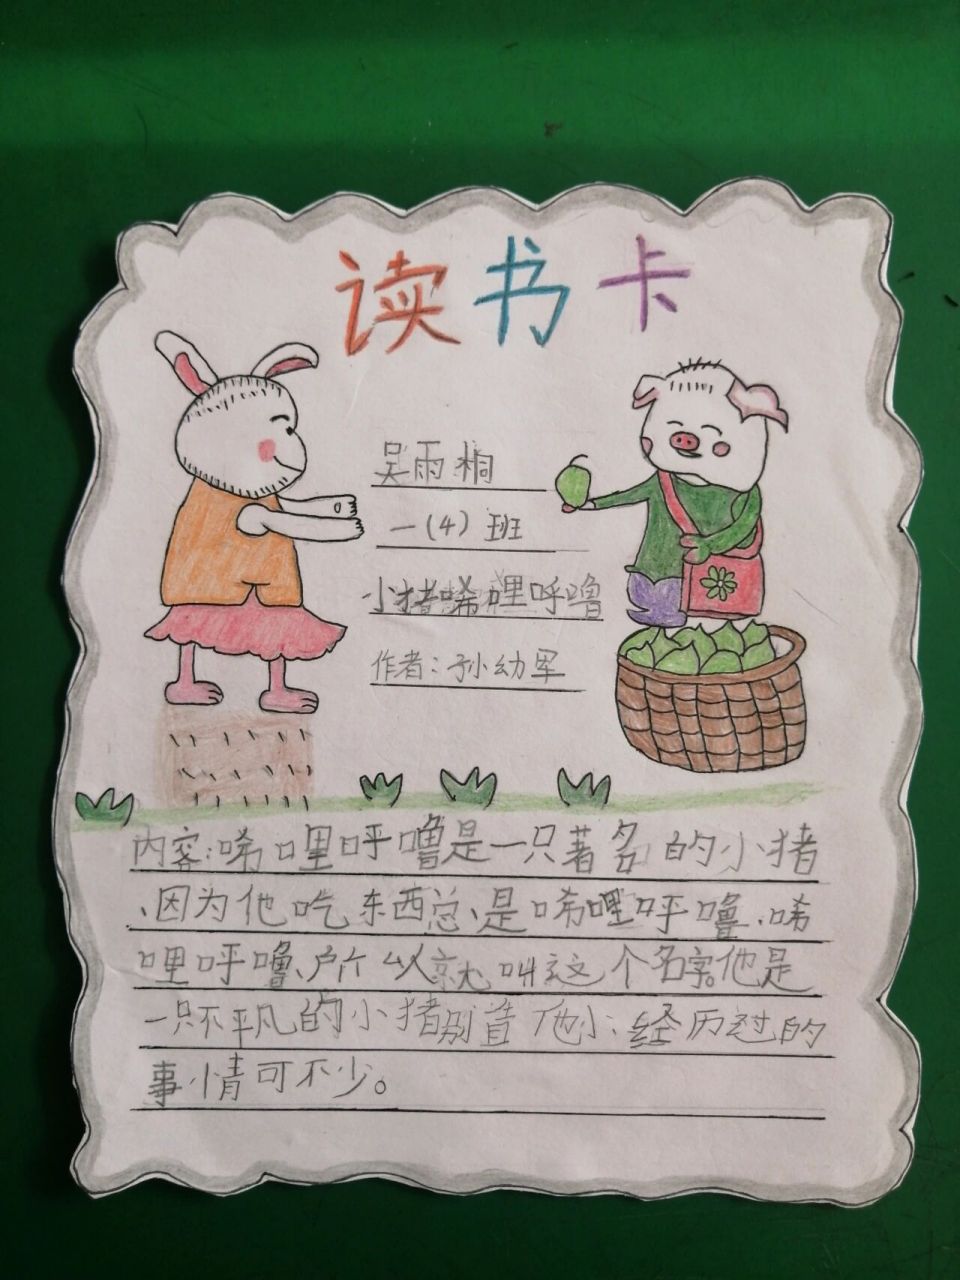 读书卡
吴雨桐
一(4)班
小猪唏哩呼噜
作者:孙幼军
内容:唏哩呼噜是一只著名的小猪
、因为他吃东西总、是唏哩呼噜、唏
哩呼噜、所以就叫这个名字。他是
一只不平凡的小猪别看他小、经历过的
事情可不少。